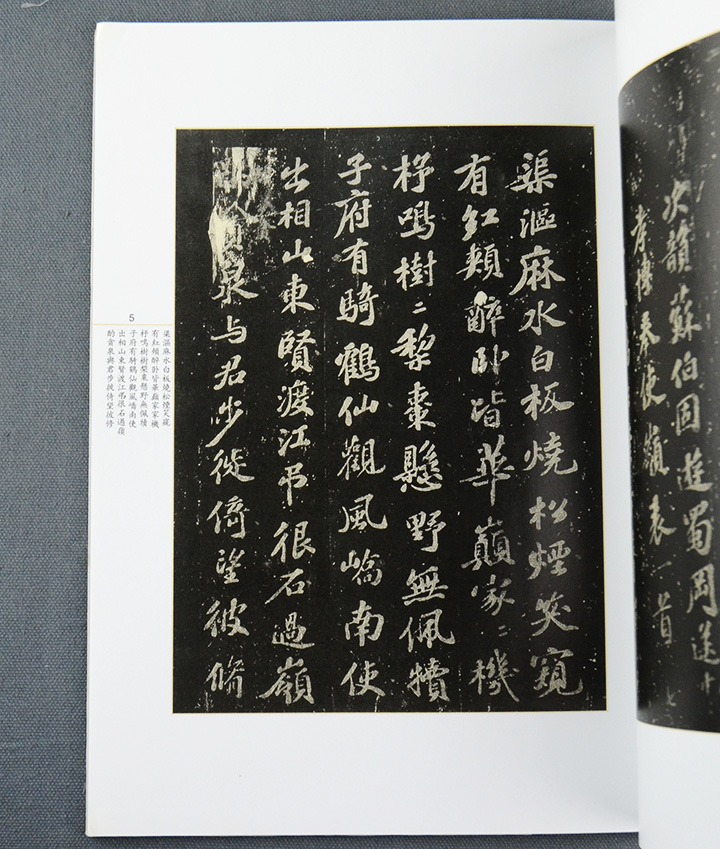 次韻蘇伯固遊蜀岡送
孝博奉使嶺表一首
渠漚麻水白板燒松煙笑窺
有紅頰醉卧皆華巔家〻機
杼鳴樹〻梨棗懸野無佩犢
子府有騎鶴仙觀風嶠南使
出相山東賢渡江弔很石過嶺
泉与君步徙倚望彼脩
5
渠漚麻水白板燒松煙笑窺
有紅頰醉卧皆華巔家家機
杼鳴樹樹梨棗懸野無佩犢
子府有騎鶴仙觀風嶠南使
出相山東賢渡江弔很石過嶺
酌貪泉與君步徙倚望彼修